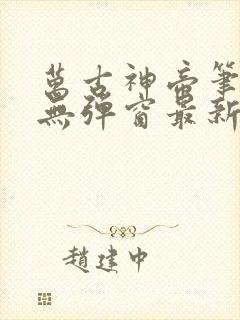 萬古神帝筆
無彈窗最新
趙建中